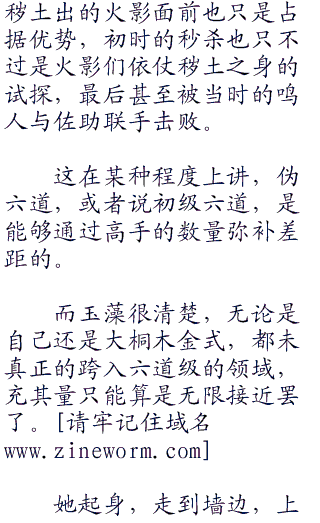 秽土出的火影面前也只是占
据优势，初时的秒杀也只不
过是火影们依仗秽土之身的
试探，最后甚至被当时的鸣
人与佐助联手击败。
这在某种程度上讲，伪
六道，或者说初级六道，是
能够通过高手的数量弥补差
距的。
而玉藻很清楚，无论是
自己还是大桐木金式，都未
真正的跨入六道级的领域，
充其量只能算是无限接近罢
了。[请牢记住域名
www.zineworm.com]
她起身，走到墙边，上